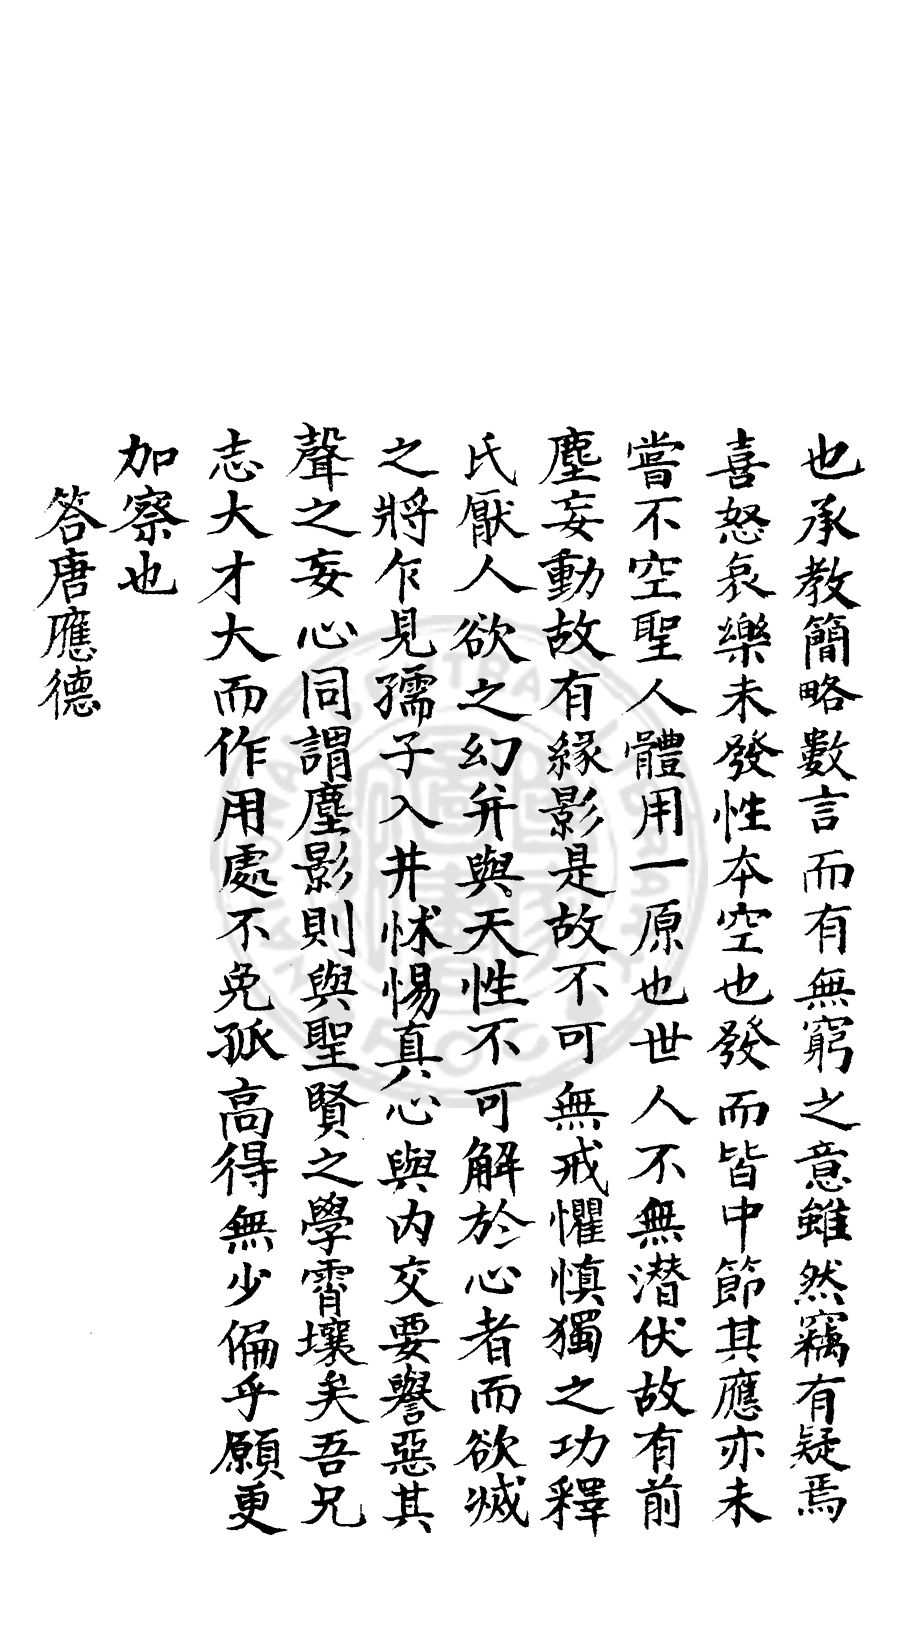 也承教簡略數言而有無窮之意雖然竊有疑焉
喜怒哀樂未發性本空也發而皆中節其應亦未
嘗不空聖人體用一原也世人不無潛伏故有前
塵妄動故有緣影是故不可無戒懼慎獨之功釋
氏厭人欲之幻并與天性不可解於心者而欲滅
之將乍見孺子入井怵惕真心與內交要譽惡其
聲之妄心同謂塵影則與聖賢之學霄壤矣吾兄
志大才大而作用處不免孤高得無少偏乎願更
加察也
答唐應德